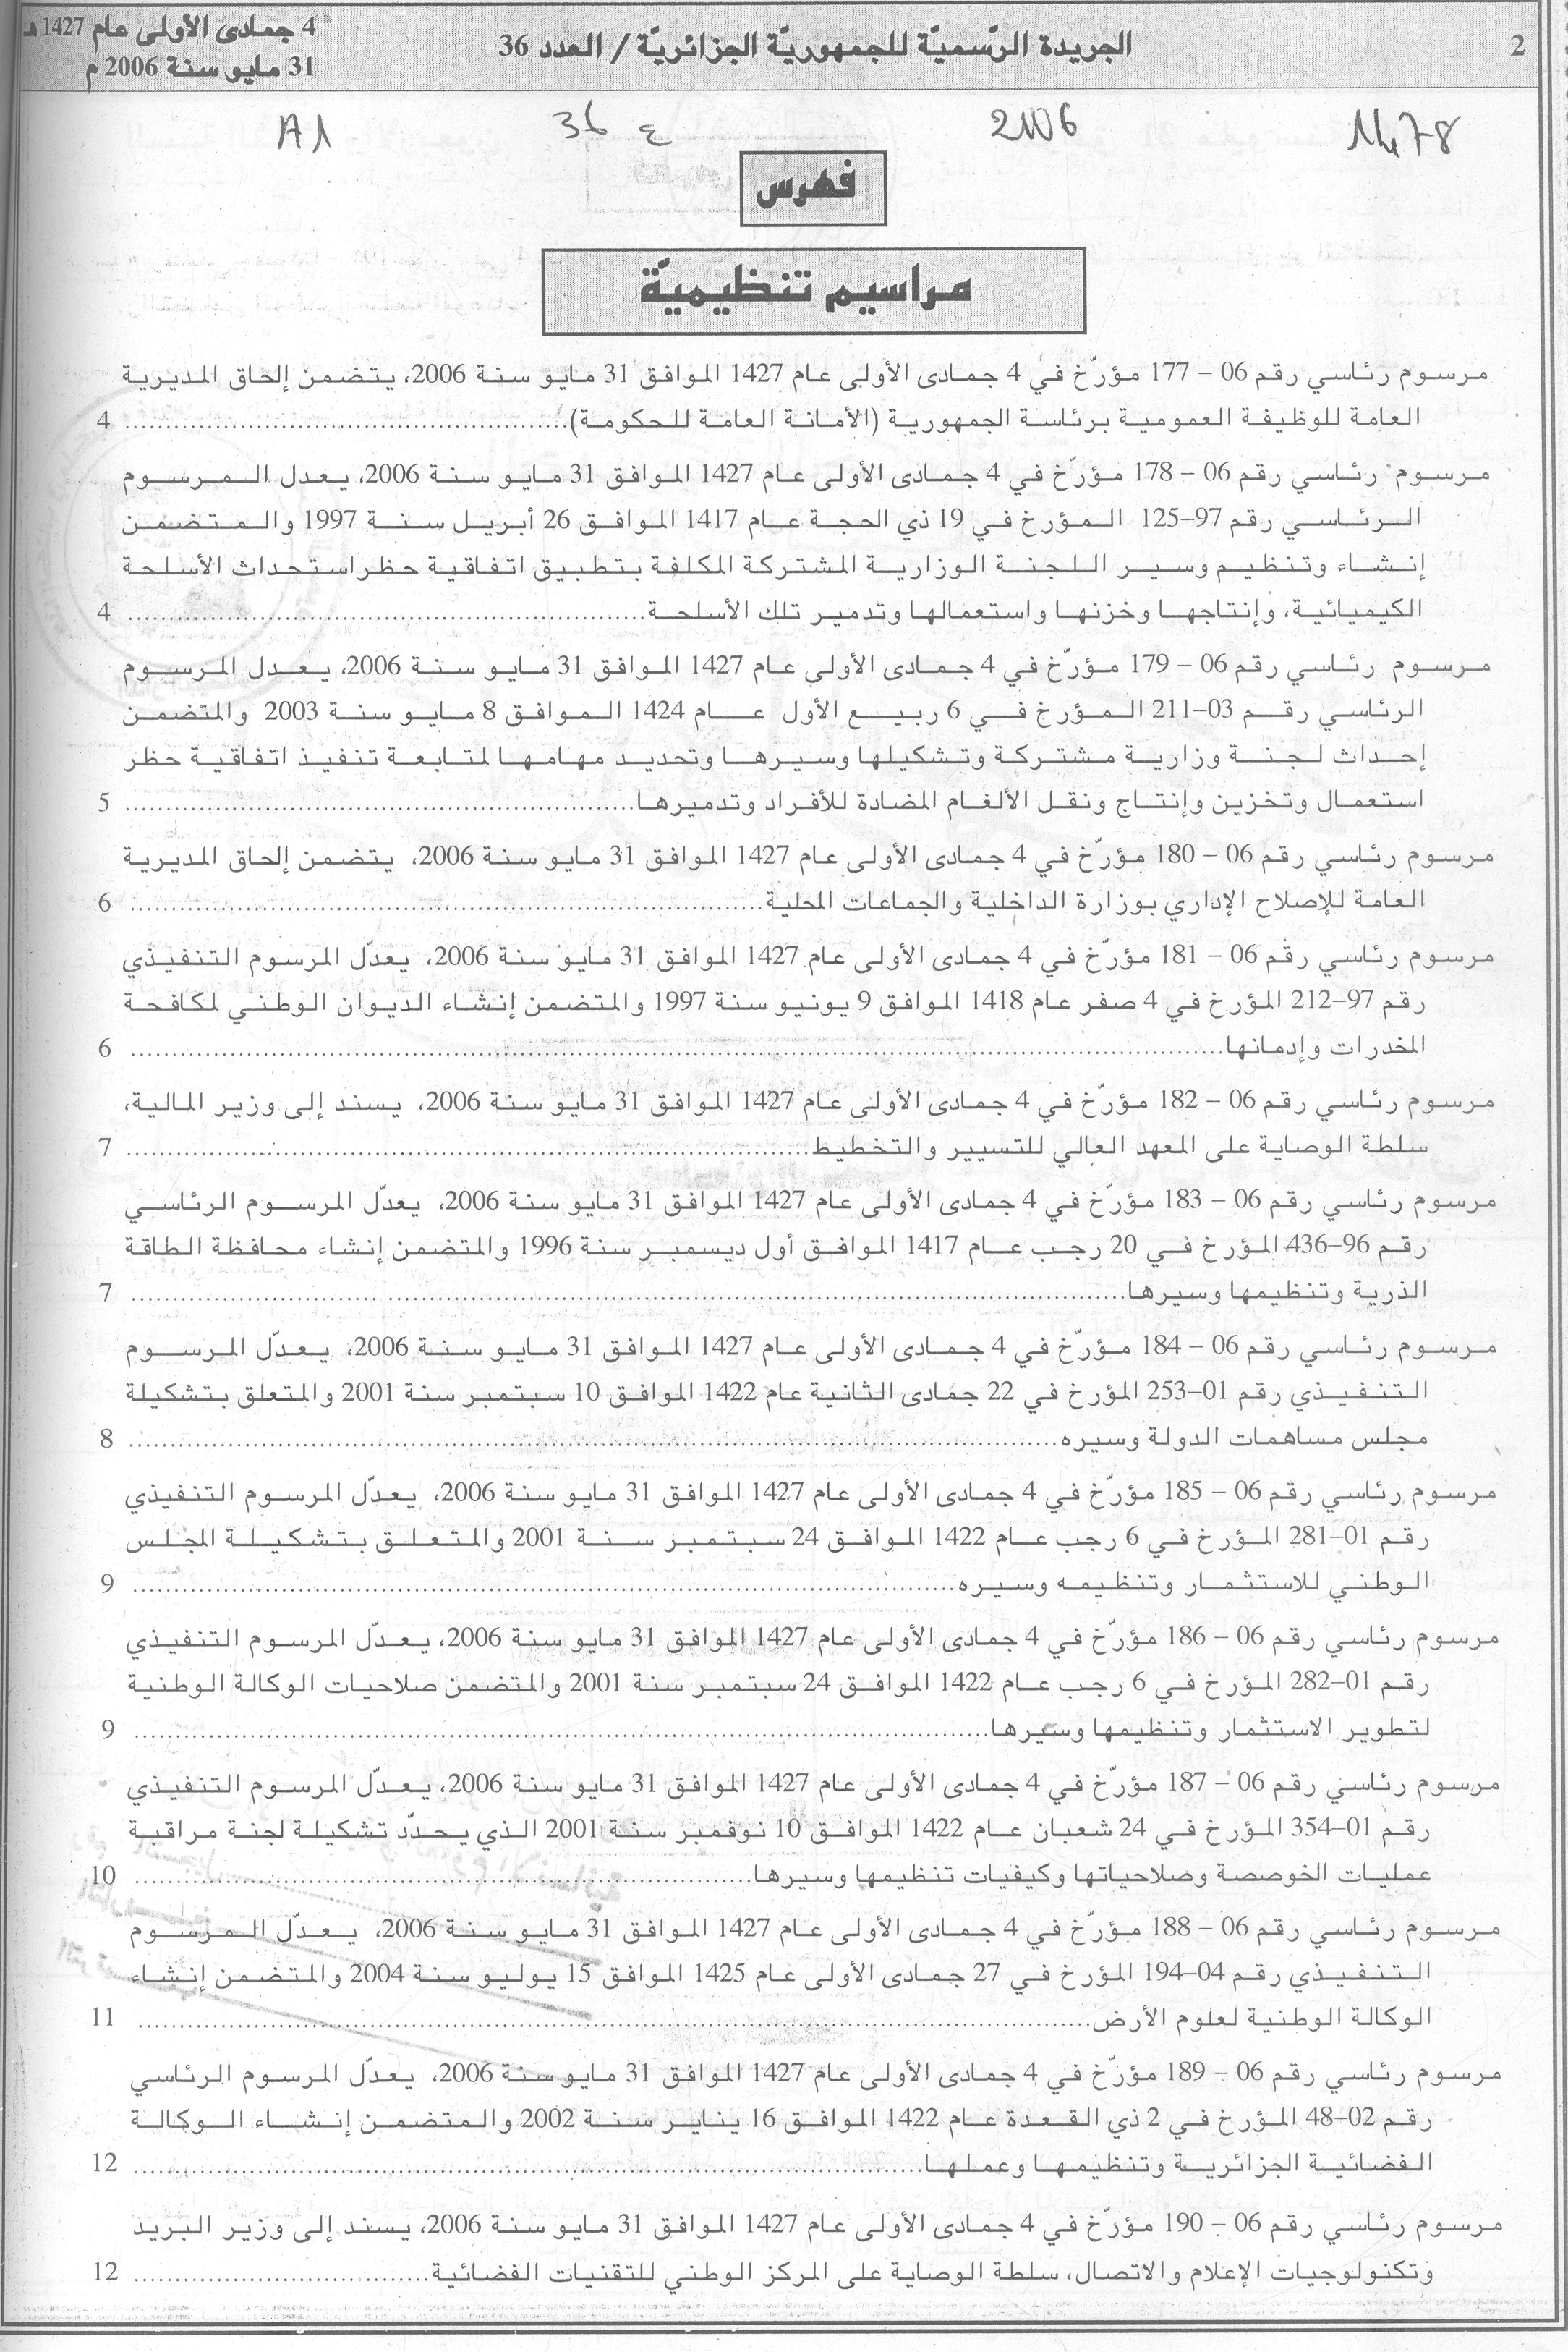 2
الجريدة الرّسميّة للجمهوريّة الجزائريّة / العدد 36
4 جمادى الأولى عام 1427 هـ
31 مايو سنة 2006 م
1478 2006 ع 36 A1
فهرس
مراسيم تنظيميّة
مرسوم رئاسي رقم 06 – 177 مؤرّخ في 4 جمادى الأولى عام 1427 الموافق 31 مايو سنة 2006، يتضمن إلحاق المديرية
العامة للوظيفة العمومية برئاسة الجمهورية (الأمانة العامة للحكومة)........ 4
مرسوم رئاسي رقم 06 – 178 مؤرّخ في 4 جمادى الأولى عام 1427 الموافق 31 مايو سنة 2006، يعدل المرسوم
الرئاسي رقم 97–125 المؤرخ في 19 ذي الحجة عام 1417 الموافق 26 أبريل سنة 1997 والمتضمن
إنشاء وتنظيم وسير اللجنة الوزارية المشتركة المكلفة بتطبيق اتفاقية حظر استحداث الأسلحة
الكيميائية، وإنتاجها وخزنها واستعمالها وتدمير تلك الأسلحة........ 4
مرسوم رئاسي رقم 06 – 179 مؤرّخ في 4 جمادى الأولى عام 1427 الموافق 31 مايو سنة 2006، يعدل المرسوم
الرئاسي رقم 03–211 المؤرخ في 6 ربيع الأول عام 1424 الموافق 8 مايو سنة 2003 والمتضمن
إحداث لجنة وزارية مشتركة وتشكيلها وسيرها وتحديد مهامها لمتابعة تنفيذ اتفاقية حظر
استعمال وتخزين وإنتاج ونقل الألغام المضادة للأفراد وتدميرها........ 5
مرسوم رئاسي رقم 06 – 180 مؤرّخ في 4 جمادى الأولى عام 1427 الموافق 31 مايو سنة 2006، يتضمن إلحاق المديرية
العامة للإصلاح الإداري بوزارة الداخلية والجماعات المحلية........ 6
مرسوم رئاسي رقم 06 – 181 مؤرّخ في 4 جمادى الأولى عام 1427 الموافق 31 مايو سنة 2006، يعدّل المرسوم التنفيذي
رقم 97–212 المؤرخ في 4 صفر عام 1418 الموافق 9 يونيو سنة 1997 والمتضمن إنشاء الديوان الوطني لمكافحة
المخدرات وإدمانها........ 6
مرسوم رئاسي رقم 06 – 182 مؤرّخ في 4 جمادى الأولى عام 1427 الموافق 31 مايو سنة 2006، يسند إلى وزير المالية،
سلطة الوصاية على المعهد العالي للتسيير والتخطيط........ 7
مرسوم رئاسي رقم 06 – 183 مؤرّخ في 4 جمادى الأولى عام 1427 الموافق 31 مايو سنة 2006، يعدّل المرسوم الرئاسي
رقم 96–436 المؤرخ في 20 رجب عام 1417 الموافق أول ديسمبر سنة 1996 والمتضمن إنشاء محافظة الطاقة
الذرية وتنظيمها وسيرها........ 7
مرسوم رئاسي رقم 06 – 184 مؤرّخ في 4 جمادى الأولى عام 1427 الموافق 31 مايو سنة 2006، يعدّل المرسوم
التنفيذي رقم 01–253 المؤرخ في 22 جمادى الثانية عام 1422 الموافق 10 سبتمبر سنة 2001 والمتعلق بتشكيلة
مجلس مساهمات الدولة وسيره........ 8
مرسوم رئاسي رقم 06 – 185 مؤرّخ في 4 جمادى الأولى عام 1427 الموافق 31 مايو سنة 2006، يعدّل المرسوم التنفيذي
رقم 01–281 المؤرخ في 6 رجب عام 1422 الموافق 24 سبتمبر سنة 2001 والمتعلق بتشكيلة المجلس
الوطني للاستثمار وتنظيمه وسيره........ 9
مرسوم رئاسي رقم 06 – 186 مؤرّخ في 4 جمادى الأولى عام 1427 الموافق 31 مايو سنة 2006، يعدّل المرسوم التنفيذي
رقم 01–282 المؤرخ في 6 رجب عام 1422 الموافق 24 سبتمبر سنة 2001 والمتضمن صلاحيات الوكالة الوطنية
لتطوير الاستثمار وتنظيمها وسيرها........ 9
مرسوم رئاسي رقم 06 – 187 مؤرّخ في 4 جمادى الأولى عام 1427 الموافق 31 مايو سنة 2006، يعدّل المرسوم التنفيذي
رقم 01–354 المؤرخ في 24 شعبان عام 1422 الموافق 10 نوفمبر سنة 2001 الذي يحدّد تشكيلة لجنة مراقبة
عمليات الخوصصة وصلاحياتها وكيفيات تنظيمها وسيرها........ 10
مرسوم رئاسي رقم 06 – 188 مؤرّخ في 4 جمادى الأولى عام 1427 الموافق 31 مايو سنة 2006، يعدّل المرسوم
التنفيذي رقم 04–194 المؤرخ في 27 جمادى الأولى عام 1425 الموافق 15 يوليو سنة 2004 والمتضمن إنشاء
الوكالة الوطنية لعلوم الأرض........ 11
مرسوم رئاسي رقم 06 – 189 مؤرّخ في 4 جمادى الأولى عام 1427 الموافق 31 مايو سنة 2006، يعدّل المرسوم الرئاسي
رقم 02–48 المؤرخ في 2 ذي القعدة عام 1422 الموافق 16 يناير سنة 2002 والمتضمن إنشاء الوكالة
الفضائية الجزائرية وتنظيمها وعملها........ 12
مرسوم رئاسي رقم 06 – 190 مؤرّخ في 4 جمادى الأولى عام 1427 الموافق 31 مايو سنة 2006، يسند إلى وزير البريد
وتكنولوجيات الإعلام والاتصال، سلطة الوصاية على المركز الوطني للتقنيات الفضائية........ 12